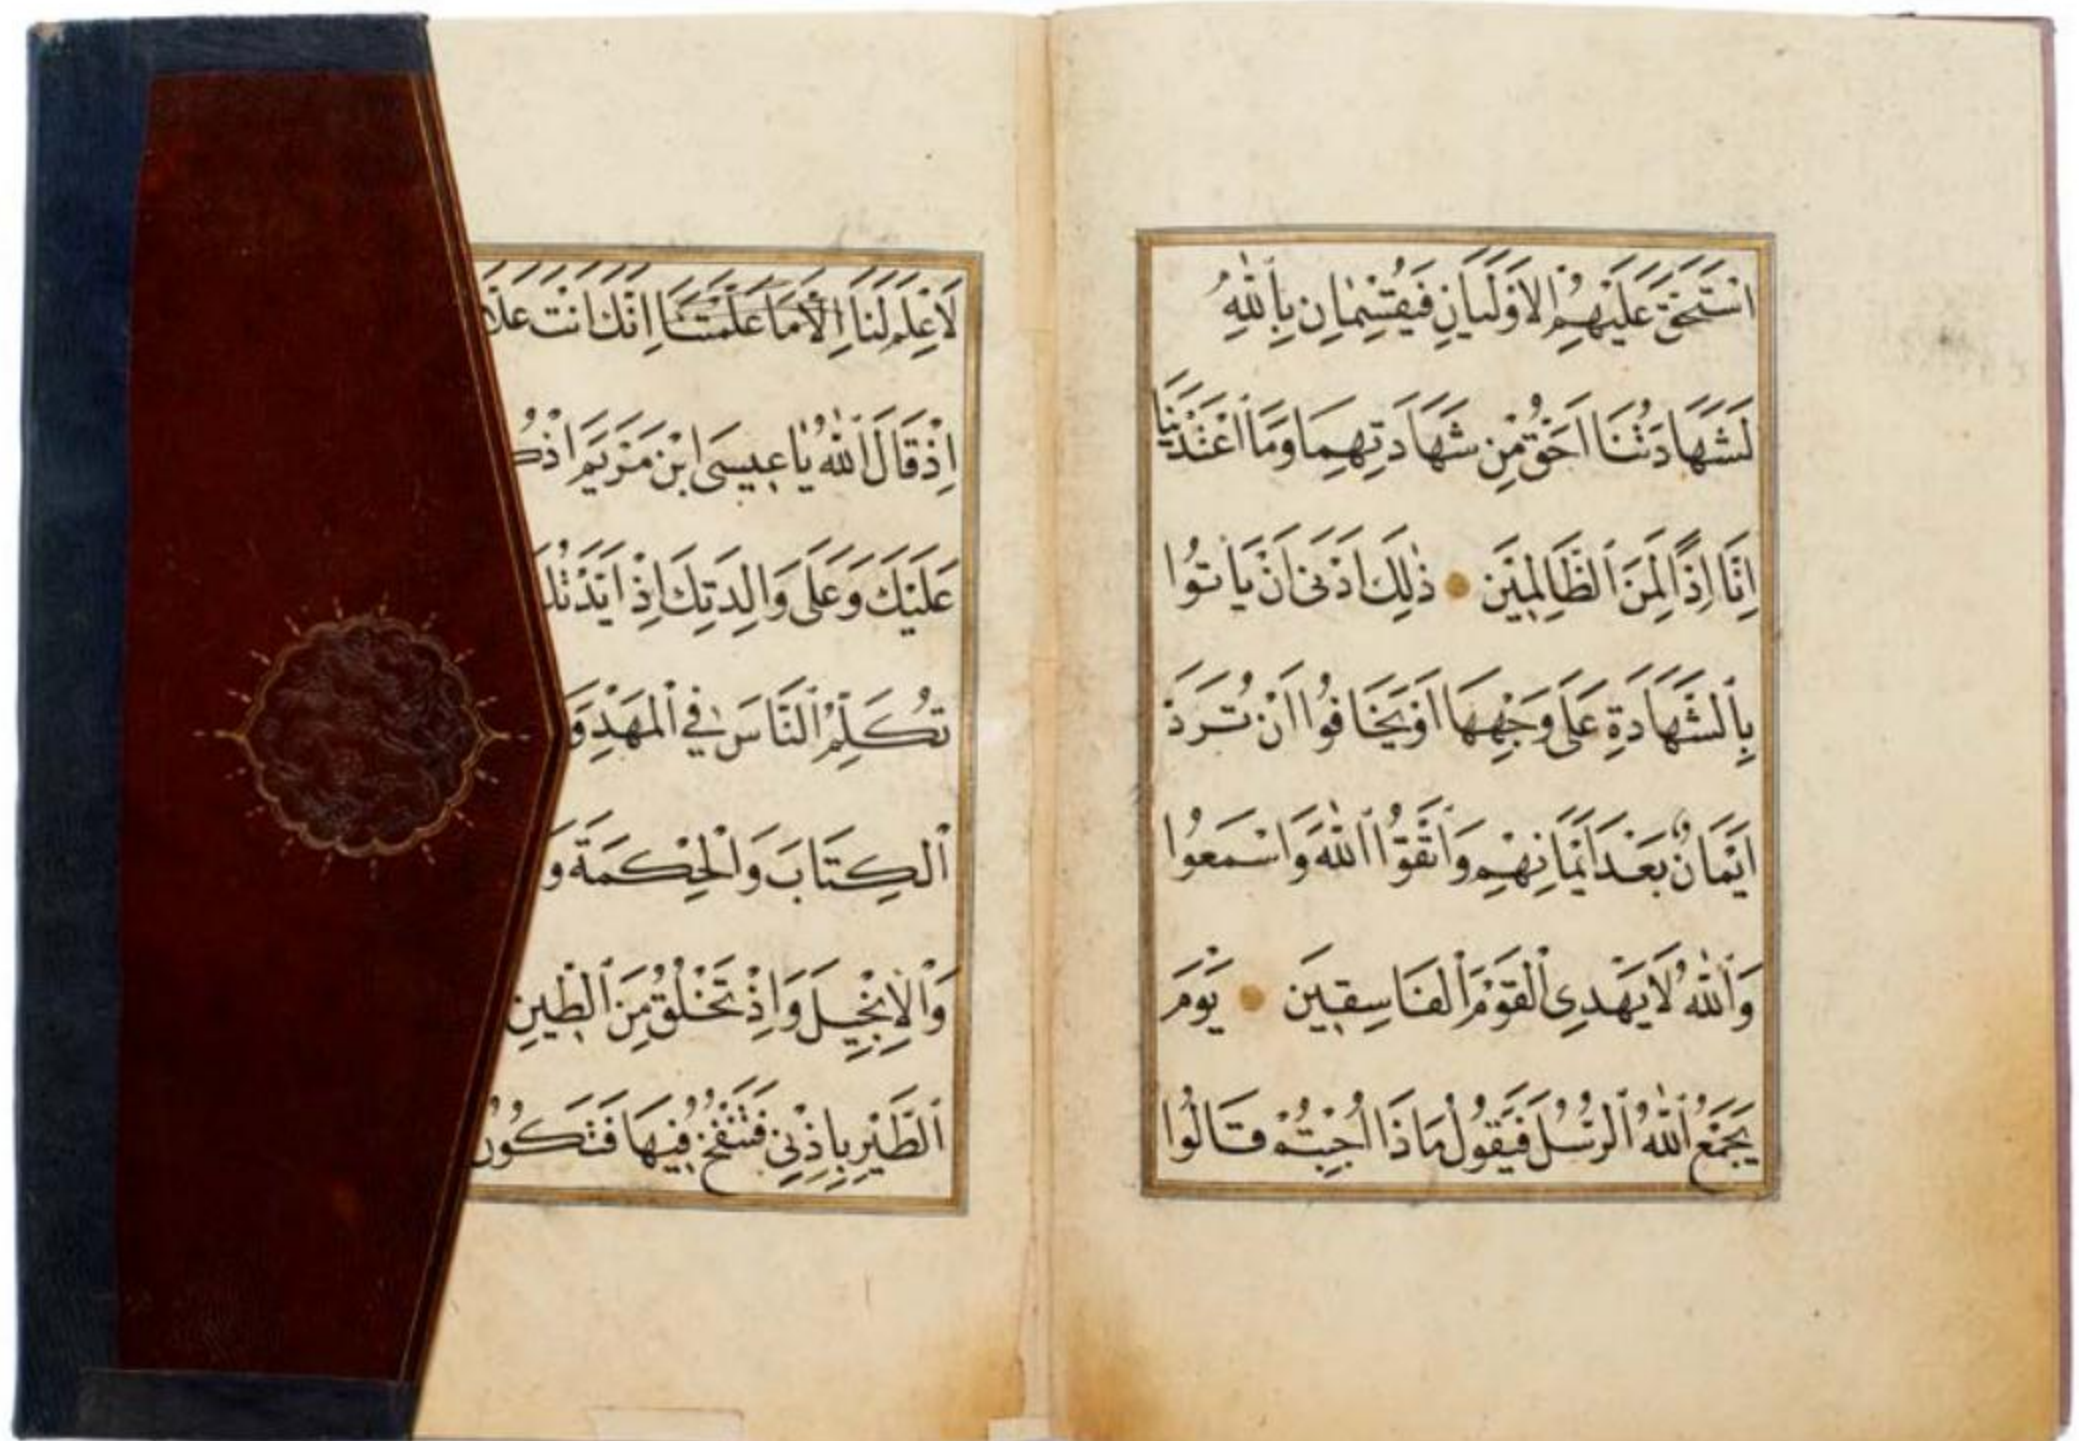 اسْتَحَقَّ عَلَيْهِمُ الْاَوْلَيَانِ فَيُقْسِمَانِ بِاللّٰهِ
لَشَهَادَتُنَا اَحَقُّ مِنْ شَهَادَتِهِمَا وَمَا اعْتَدَيْنَا
اِنَّا اِذًا لَمِنَ الظَّالِمِينَ ذٰلِكَ اَدْنٰى اَنْ يَاْتُوا
بِالشَّهَادَةِ عَلٰى وَجْهِهَا اَوْ يَخَافُوا اَنْ تُرَدَّ
اَيْمَانٌ بَعْدَ اَيْمَانِهِمْ وَاتَّقُوا اللّٰهَ وَاسْمَعُوا
وَاللّٰهُ لَا يَهْدِى الْقَوْمَ الْفَاسِقِينَ يَوْمَ
يَجْمَعُ اللّٰهُ الرُّسُلَ فَيَقُولُ مَاذَا اُجِبْتُمْ قَالُوا
لَا عِلْمَ لَنَا اِلَّا مَا عَلَّمْتَنَا اِنَّكَ اَنْتَ
اِذْ قَالَ اللّٰهُ يَا عِيسَى ابْنَ مَرْيَمَ
عَلَيْكَ وَعَلٰى وَالِدَتِكَ اِذْ اَيَّدْتُكَ
تُكَلِّمُ النَّاسَ فِي الْمَهْدِ وَ
الْكِتَابَ وَالْحِكْمَةَ وَ
وَالْاِنْجِيلَ وَاِذْ تَخْلُقُ مِنَ الطِّينِ
الطَّيْرِ بِاِذْنِي فَتَنْفُخُ فِيهَا فَتَكُونُ